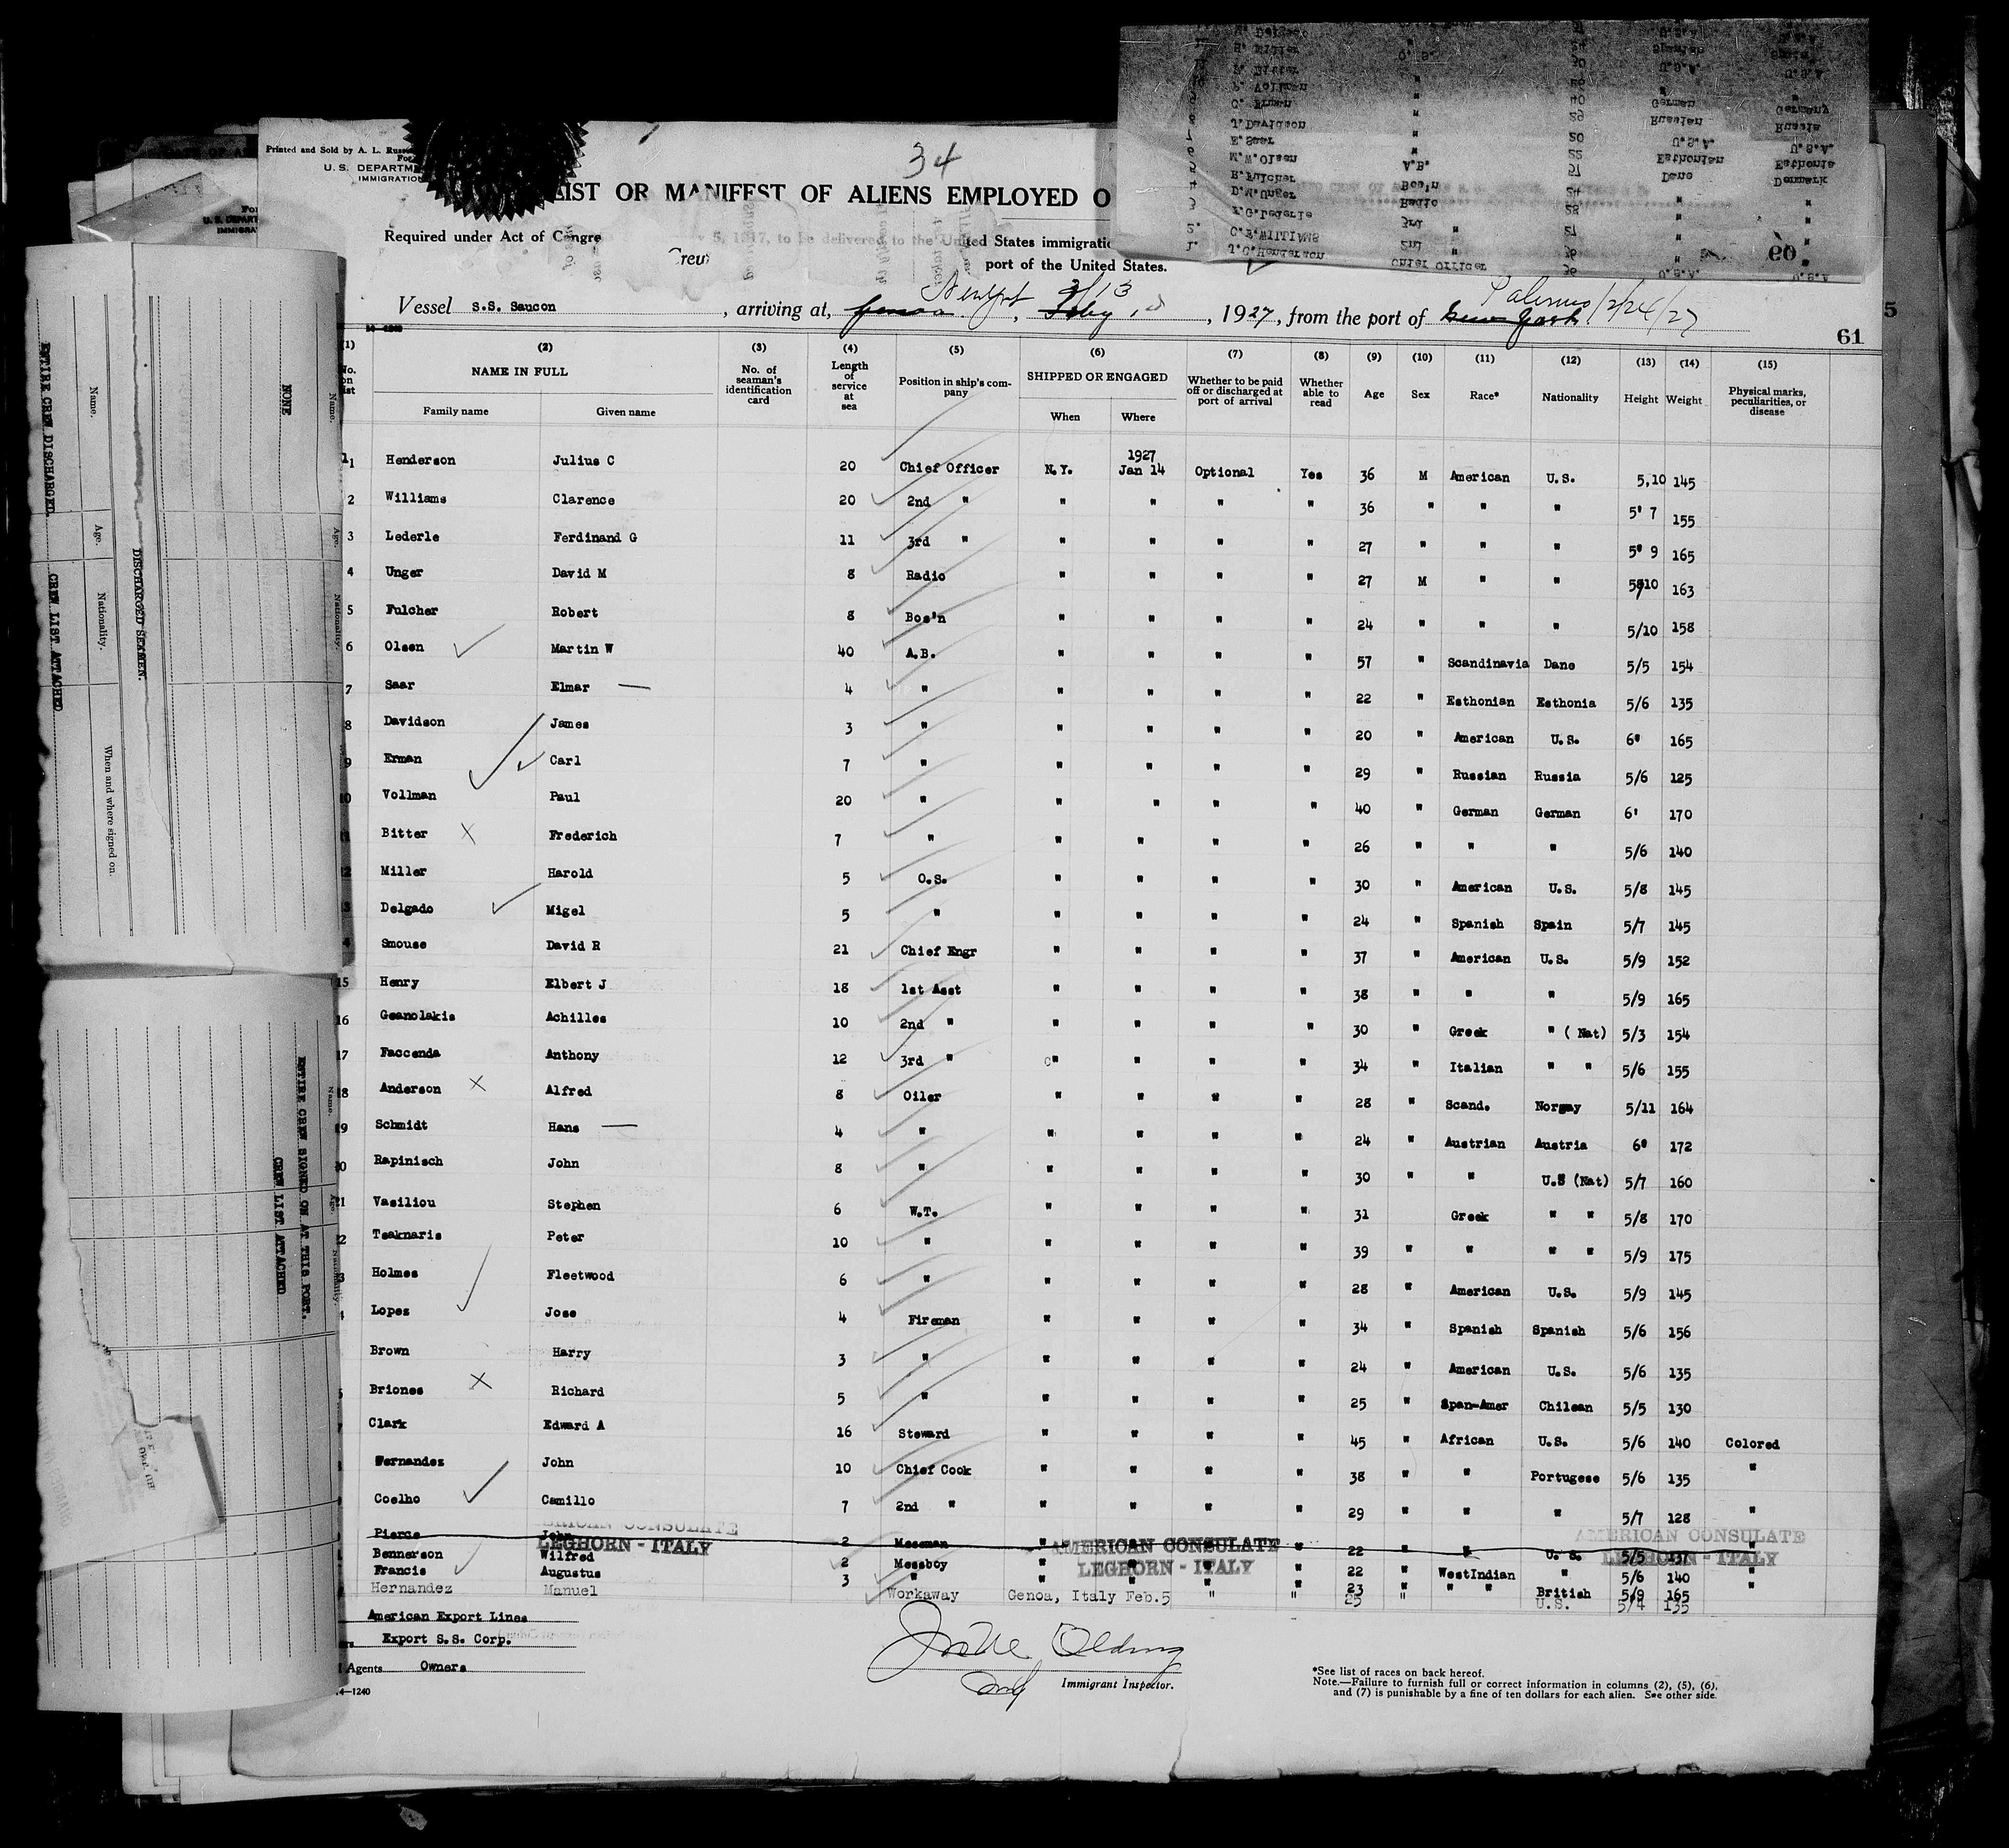 34
Printed and Sold by A. L. Russ
U.S. DEPARTM
IMMIGRATIO
LIST OR MANIFEST OF ALIENS EMPLOYED O
Required under Act of Congre 5, 1917, to be delivered to the United States immigratio
port of the United States.
Vessel S.S. Saucon, arriving at, Newport 3/13, 1927, from the port of Palermo/2/24/27
61
(1) (2) (3) (4) (5) (6) (7) (8) (9) (10) (11) (12) (13) (14) (15)
No. on list NAME IN FULL No. of seaman's identification card Length of service at sea Position in ship's company SHIPPED OR ENGAGED Whether to be paid off or discharged at port of arrival Whether able to read Age Sex Race* Nationality Height Weight Physical marks, peculiarities, or disease
Family name Given name When Where
1 Henderson Julius C 20 Chief Officer N.Y. 1927 Jan 14 Optional Yes 36 M American U.S. 5,10 145
2 Williams Clarence 20 2nd " " " " " 36 " " " 5' 7 155
3 Lederle Ferdinand G 11 3rd " " " " " 27 " " " 5' 9 165
4 Unger David M 8 Radio " " " " 27 M " " 5/10 163
5 Fulcher Robert 8 Bos'n " " " " 24 " " " 5/10 158
6 Olsen Martin W 40 A.B. " " " " 57 " Scandinavia Dane 5/5 154
7 Saar Elmar 4 " " " " " 22 " Esthonian Esthonia 5/6 135
8 Davidson James 3 " " " " " 20 " American U.S. 6' 165
9 Erman Carl 7 " " " " " 29 " Russian Russia 5/6 125
10 Vollman Paul 20 " " " " " 40 " German German 6' 170
11 Bitter Frederich 7 " " " " " 26 " " " 5/6 140
12 Miller Harold 5 O.S. " " " " 30 " American U.S. 5/8 145
13 Delgado Migel 5 " " " " " 24 " Spanish Spain 5/7 145
14 Smouse David R 21 Chief Engr " " " " 37 " American U.S. 5/9 152
15 Henry Elbert J 18 1st Asst " " " " 38 " " " 5/9 165
16 Geanolakis Achilles 10 2nd " " " " " 30 " Greek " (Nat) 5/3 154
17 Faccenda Anthony 12 3rd " " " " " 34 " Italian " " 5/6 155
18 Anderson Alfred 8 Oiler " " " " 28 " Scand. Norway 5/11 164
19 Schmidt Hans 4 " " " " " 24 " Austrian Austria 6' 172
20 Rapinisch John 8 " " " " " 30 " " U.S (Nat) 5/7 160
21 Vasiliou Stephen 6 W.T. " " " " 31 Greek " " 5/8 170
22 Tsaknaris Peter 10 " " " " " 39 " " " " 5/9 175
23 Holmes Fleetwood 6 " " " " " 28 " American U.S. 5/9 145
Lopez Jose 4 Fireman " " " " 34 " Spanish Spanish 5/6 156
Brown Harry 3 " " " " " 24 " American U.S. 5/6 135
Briones Richard 5 " " " " " 25 " Span-Amer Chilean 5/5 130
Clark Edward A 16 Steward " " " " 45 " African U.S. 5/6 140 Colored
Fernandez John 10 Chief Cook " " " " 38 " " Portugese 5/6 135 "
Coelho Camillo 7 2nd " " " " " 29 " " " 5/7 128 "
Pierce John 2 Messman " " " " 22 " " U. S. 5/5 137 "
Bennerson Wilfred 2 Messboy " " " " 22 " WestIndian " 5/6 140 "
Francis Augustus 3 " " " " " 23 " " " British 5/9 165 "
Hernandez Manuel Workaway Genoa, Italy Feb.5 " " 25 " U.S. 5/4 135
AMERICAN CONSULATE
LEGHORN - ITALY
AMERICAN CONSULATE
LEGHORN - ITALY
AMERICAN CONSULATE
LEGHORN - ITALY
American Export Lines
Export S.S. Corp.
Agents Owners
14-1240
Immigrant Inspector.
*See list of races on back hereof.
Note.—Failure to furnish full or correct information in columns (2), (5), (6),
and (7) is punishable by a fine of ten dollars for each alien. See other side.
ENTIRE CREW DISCHARGED.
CREW LIST ATTACHED
Name. Age. Nationality. When and where signed on.
DISCHARGED SEAMEN.
NONE
Name. Age. Nationality.
ENTIRE CREW SIGNED ON AT THIS PORT.
CREW LIST ATTACHED
Name. Age. Nationality.
60
1. J.C.Henderson Chief Officer 36 U.S.A. U.S.A
2. C.F.WILLIAMS 2nd " 36 " "
3 F.G.Lederle 3rd " 27 " "
4 D.M.Unger Radio 28 " "
5 R.Fulcher Bos'n 24 " "
6 M.W.Olsen A.B. 57 Dane Denmark
7 E.Saar " 22 Esthonian Esthonia
8 J.Davidson " 20 U.S.A. U.S.A.
C. Erman " 29 Russian Russia
P. Vollman " 40 German Germany
F. Bitter " 26 " "
H. Miller O.S. 30 U.S.A. U.S.A
M. Delgado " 24 Spanish Spain